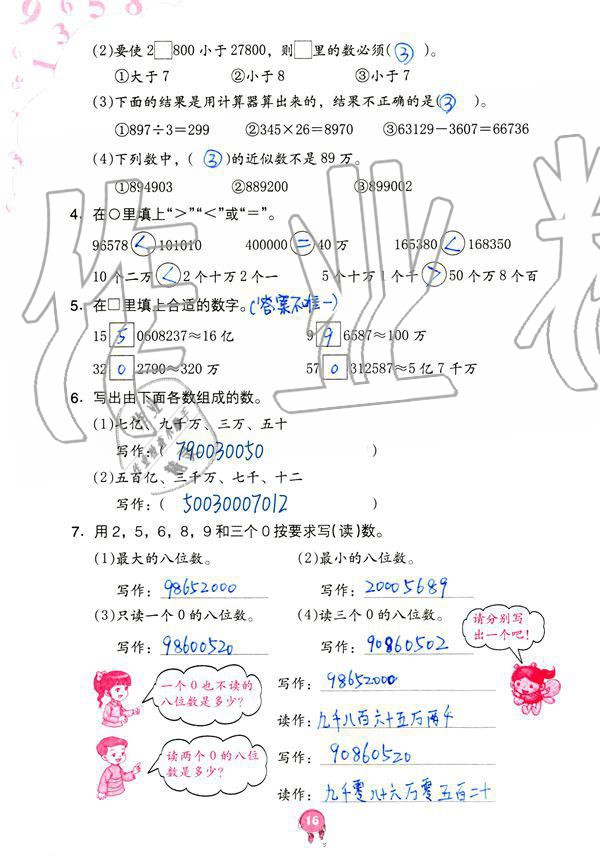 (2)要使2□800小于27800，则□里的数必须(③)。
①大于7 ②小于8 ③小于7
(3)下面的结果是用计算器算出来的，结果不正确的是(③)。
①897÷3=299 ②345×26=8970 ③63129-3607=66736
(4)下列数中，(③)的近似数不是89万。
①894903 ②889200 ③899002
4. 在○里填上“>”“<”或“=”。
96578<101010 400000=40万 165380<168350
10个二万<2个十万2个一 5个十万1个千>50个万8个百
5. 在□里填上合适的数字。(答案不唯一)
15 5 0608237≈16亿 9 9 6587≈100万
32 0 2790≈320万 57 0 312587≈5亿7千万
6. 写出由下面各数组成的数。
(1)七亿、九千万、三万、五十
写作：(790030050)
(2)五百亿、三千万、七千、十二
写作：(50030007012)
7. 用2，5，6，8，9和三个0按要求写(读)数。
(1)最大的八位数。 (2)最小的八位数。
写作：98652000 写作：20005689
(3)只读一个0的八位数。 (4)读三个0的八位数。
写作：98600520 写作：90860502
请分别写
出一个吧！
一个0也不读的
八位数是多少？
写作：98652000
读作：九千八百六十五万两千
读两个0的八位
数是多少？
写作：90860520
读作：九千零八十六万零五百二十
16